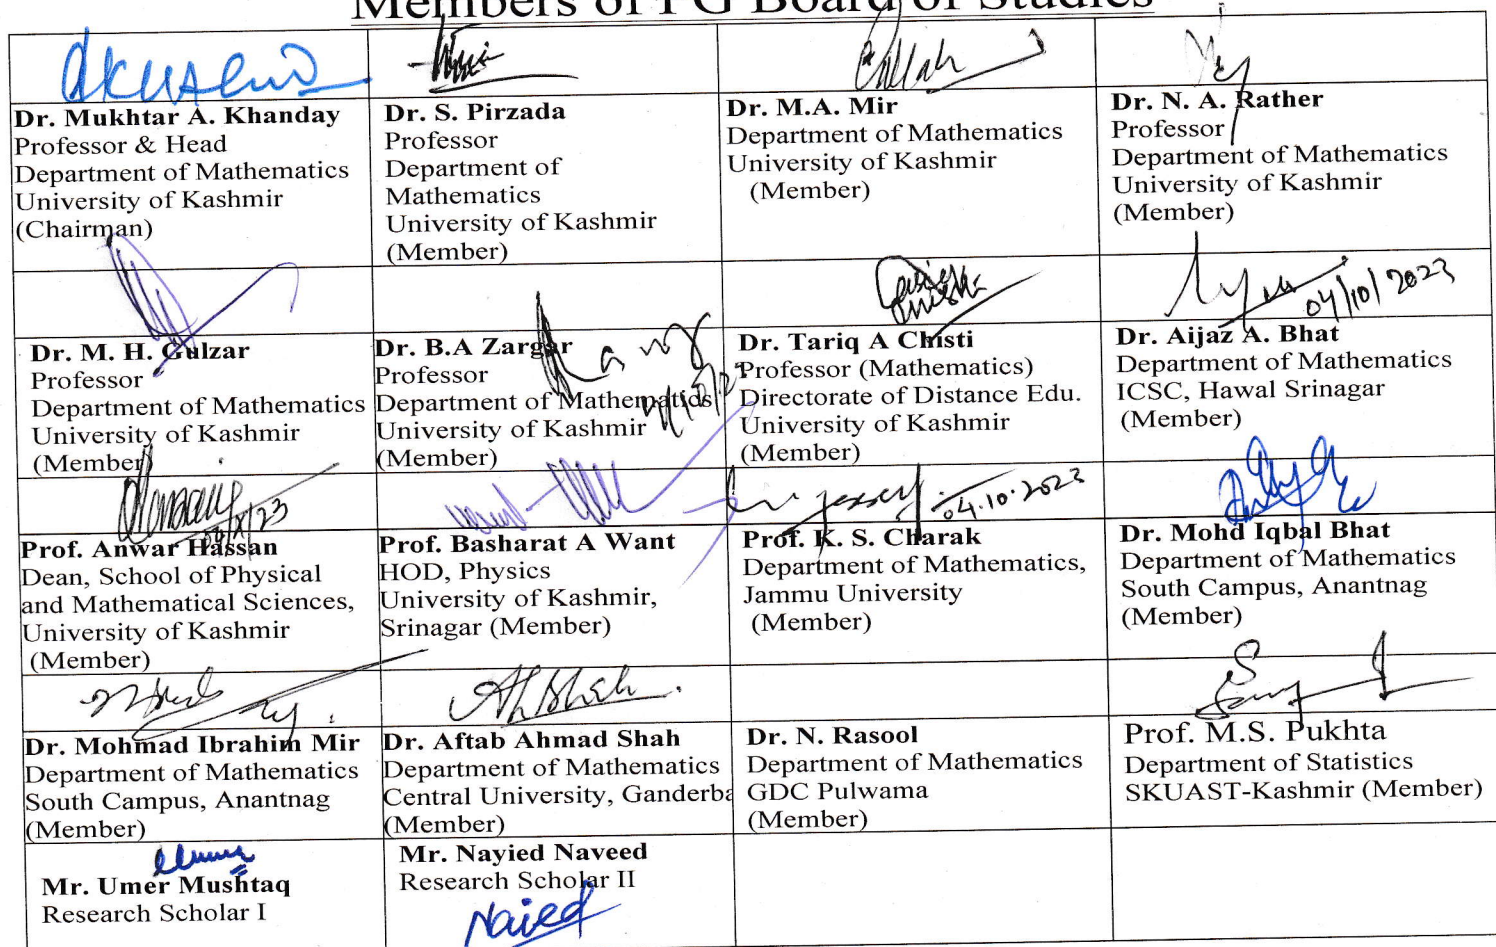 Members of PG Board of Studies
Dr. Mukhtar A. Khanday
Professor & Head
Department of Mathematics
University of Kashmir
(Chairman)
Dr. S. Pirzada
Professor
Department of
Mathematics
University of Kashmir
(Member)
Dr. M.A. Mir
Department of Mathematics
University of Kashmir
(Member)
Dr. N. A. Rather
Professor
Department of Mathematics
University of Kashmir
(Member)
Dr. M. H. Gulzar
Professor
Department of Mathematics
University of Kashmir
(Member)
Dr. B.A Zargar
Professor
Department of Mathematics
University of Kashmir
(Member)
Dr. Tariq A Chisti
Professor (Mathematics)
Directorate of Distance Edu.
University of Kashmir
(Member)
04/10/2023
Dr. Aijaz A. Bhat
Department of Mathematics
ICSC, Hawal Srinagar
(Member)
Prof. Anwar Hassan
Dean, School of Physical
and Mathematical Sciences,
University of Kashmir
(Member)
Prof. Basharat A Want
HOD, Physics
University of Kashmir,
Srinagar (Member)
04.10.2023
Prof. K. S. Charak
Department of Mathematics,
Jammu University
(Member)
Dr. Mohd Iqbal Bhat
Department of Mathematics
South Campus, Anantnag
(Member)
Dr. Mohmad Ibrahim Mir
Department of Mathematics
South Campus, Anantnag
(Member)
Dr. Aftab Ahmad Shah
Department of Mathematics
Central University, Ganderba
(Member)
Dr. N. Rasool
Department of Mathematics
GDC Pulwama
(Member)
Prof. M.S. Pukhta
Department of Statistics
SKUAST-Kashmir (Member)
Mr. Umer Mushtaq
Research Scholar I
Mr. Nayied Naveed
Research Scholar II
Naied